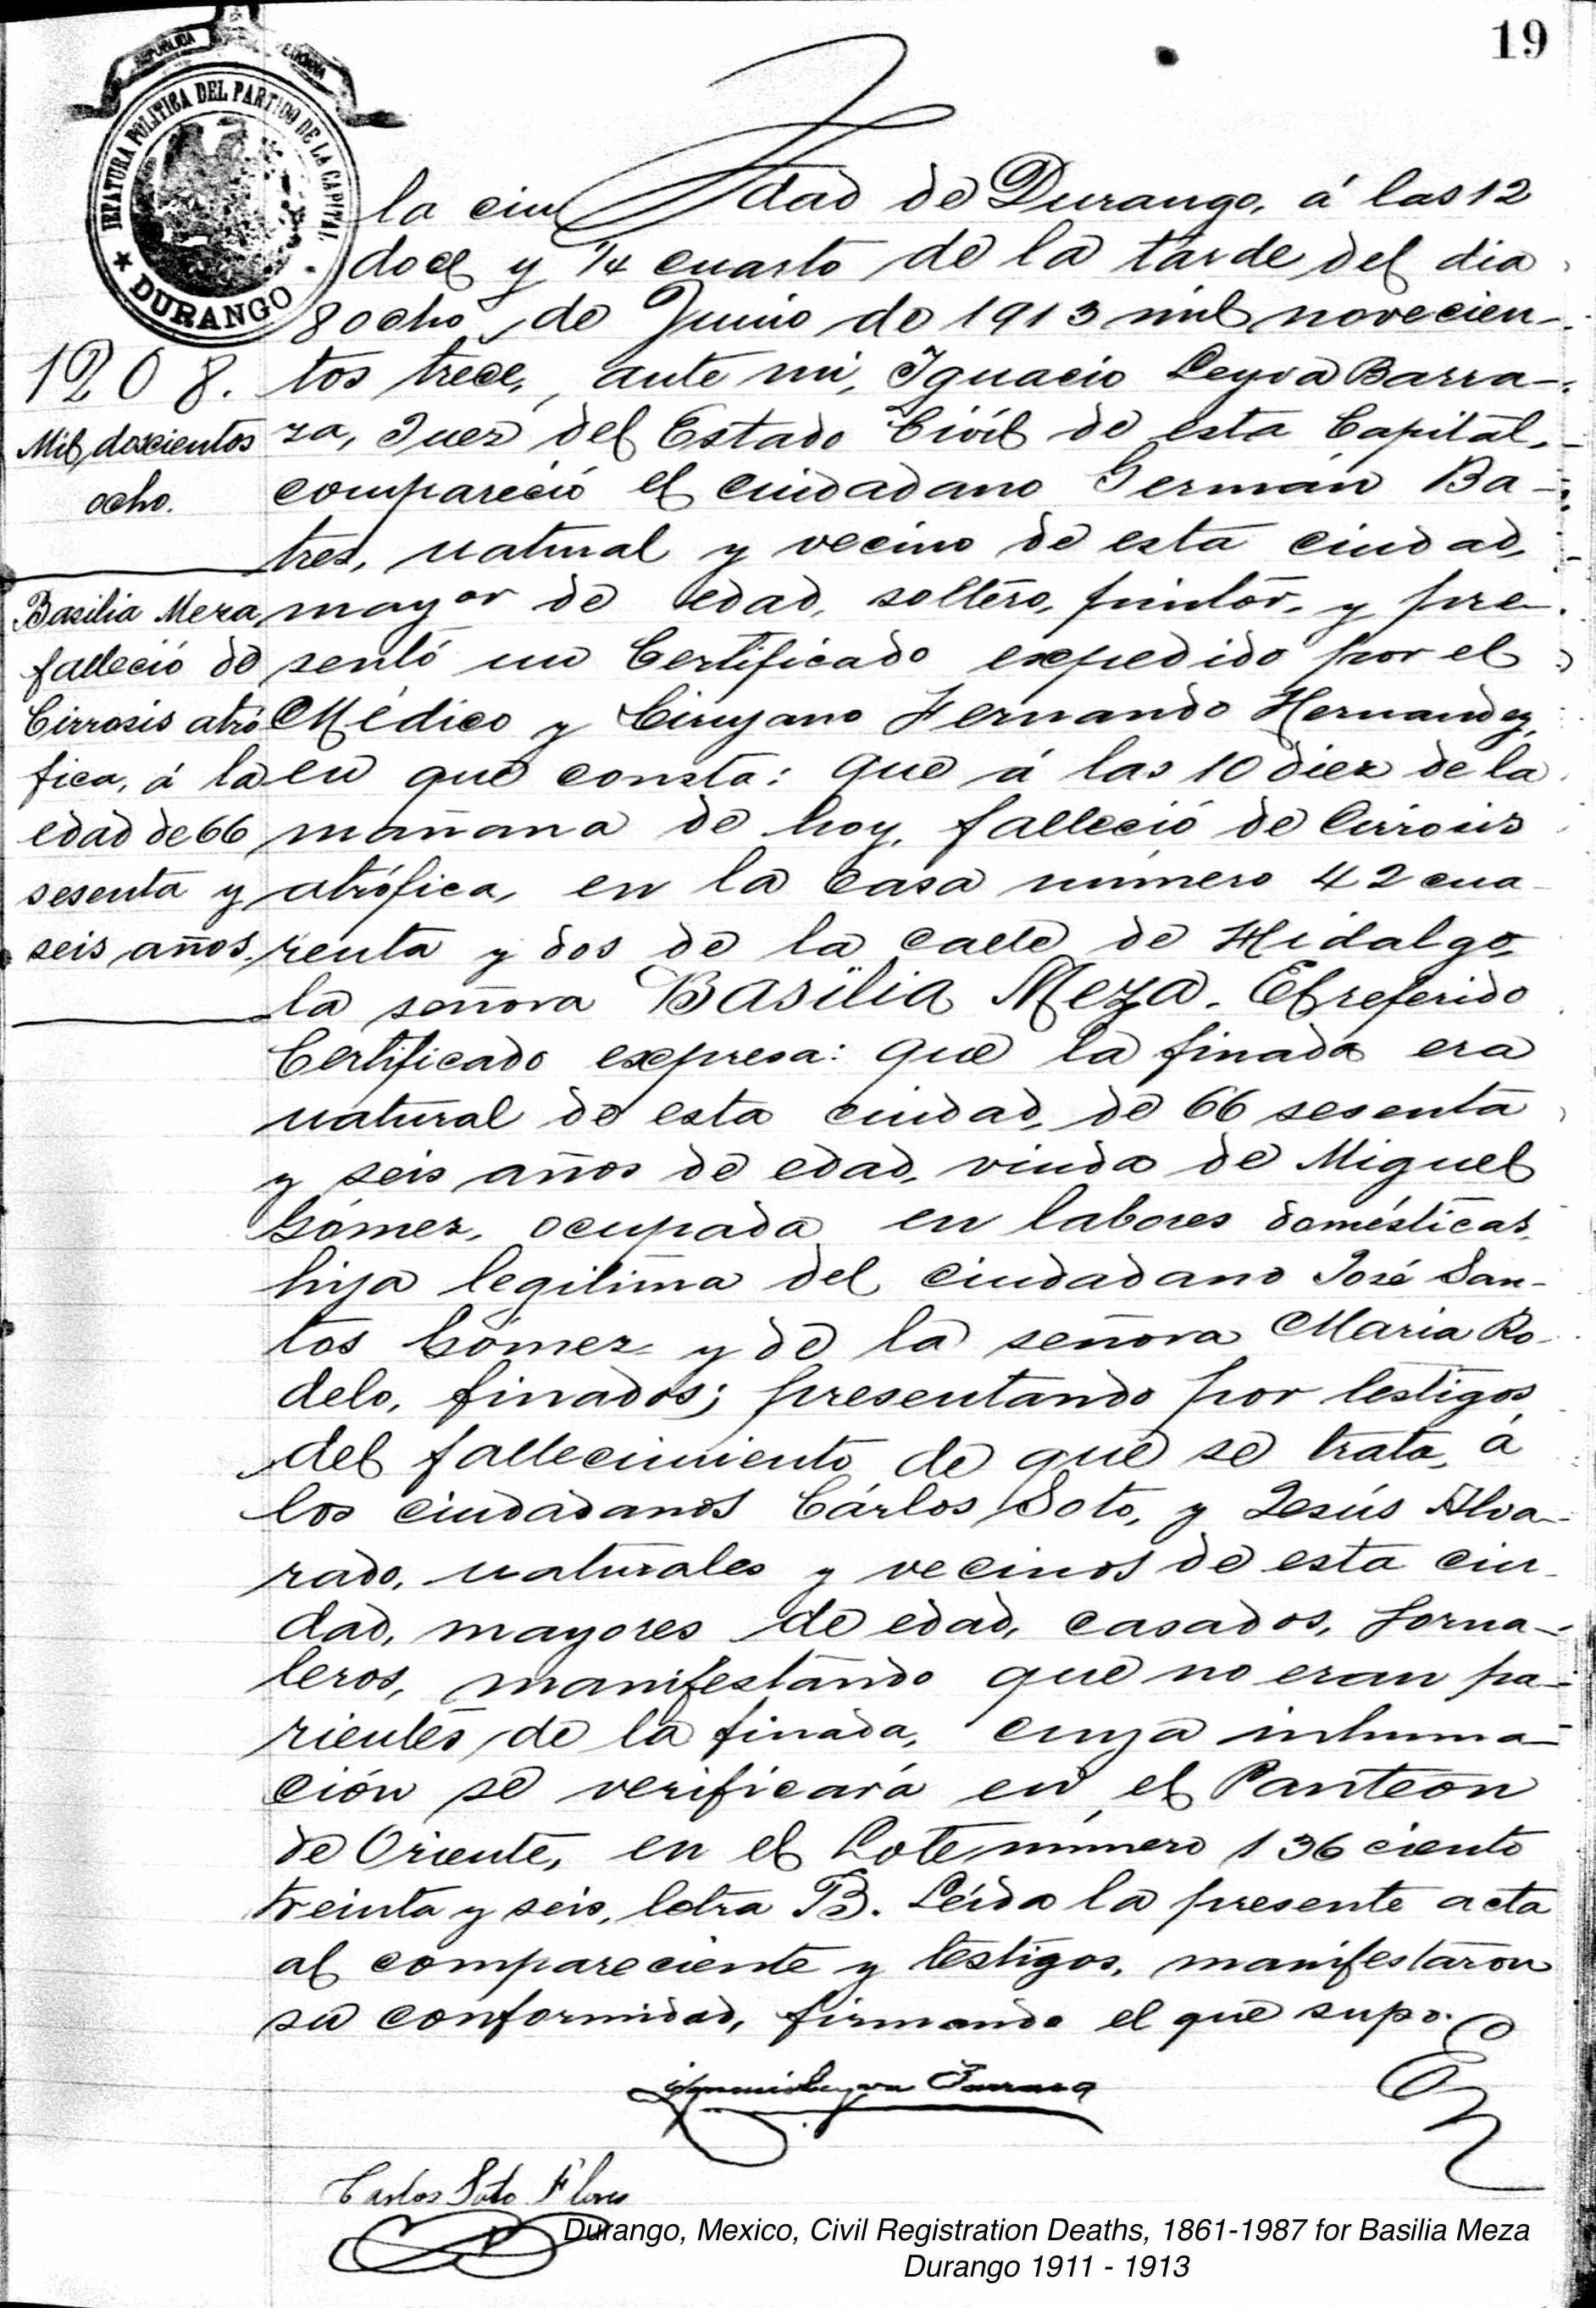 19
REPUBLICA MEXICANA
JEFATURA POLITICA DEL PARTIDO DE LA CAPITAL.
★ DURANGO
la ciudad de Durango, á las 12
doce y 1/4 cuarto de la tarde del dia
8 ocho de Junio de 1913 mil novecien-
tos trece, ante mi, Ignacio Leyva Barra-
za, Juez del Estado Civil de esta Capital,
compareció el ciudadano Germán Ba-
tres, natural y vecino de esta ciudad,
mayor de edad, soltero, pintor, y pre-
sentó un Certificado expedido por el
Médico y Cirujano Fernando Hernandez,
en que consta: que á las 10 diez de la
mañana de hoy, falleció de Cirrosis
atrófica, en la casa número 42 cua-
renta y dos de la calle de Hidalgo,
la señora Basilia Meza. El referido
Certificado expresa: que la finada era
natural de esta ciudad, de 66 sesenta
y seis años de edad, viuda de Miguel
Gómez, ocupada en labores domésticas,
hija legitima del ciudadano José San-
tos Gómez y de la señora Maria Ro-
delo, finados; presentando por testigos
del fallecimiento de que se trata, á
los ciudadanos Cárlos Soto, y Jesús Alva-
rado, naturales y vecinos de esta ciu-
dad, mayores de edad, casados, jorna-
leros, manifestando que no eran pa-
rientes de la finada, cuya inhuma-
ción se verificará en el Panteón
de Oriente, en el Lote número 136 ciento
treinta y seis, letra B. Leída la presente acta
al compareciente y testigos, manifestaron
su conformidad, firmando el que supo.
1208.
Mil doscientos
ocho.
Basilia Meza
falleció de
Cirrosis atró
fica, á la
edad de 66
sesenta y
seis años.
Ignacio Leyva Barraza
En
Carlos Soto Flores
Durango, Mexico, Civil Registration Deaths, 1861-1987 for Basilia Meza
Durango 1911 - 1913